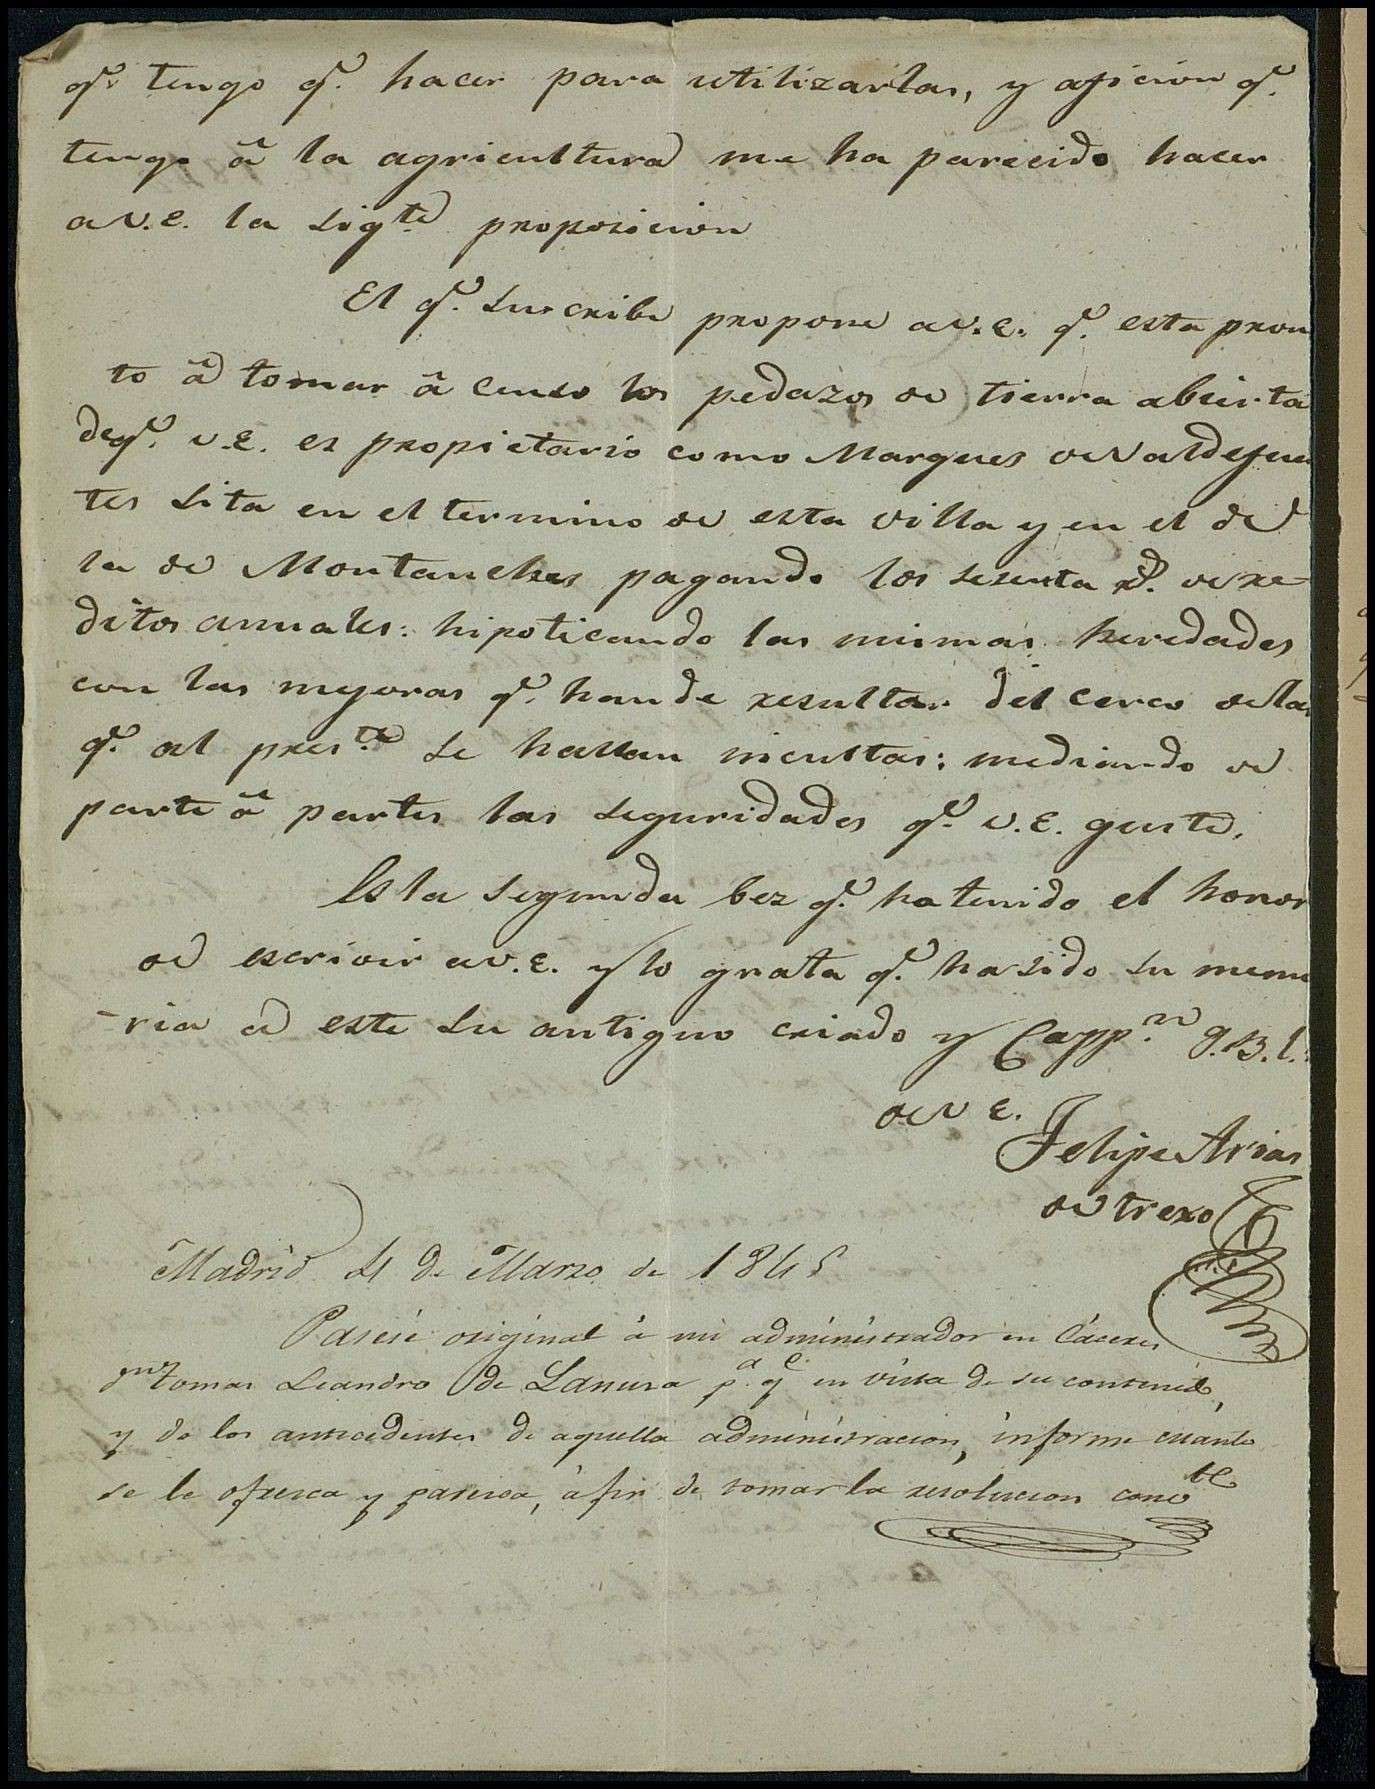 q.e tengo q.e hacer para utilizarlas, y aficion q.e
tengo â la agricultura me ha parecido hacer
a V.E. la sigte. proposicion
El q.e suscribe propone a V.E. q.e esta pron
to â tomar â censo los pedazos de tierra abierta
de q.e V.E. es propietario como Marques de Valdefuen
tes sita en el termino de esta villa y en el de
la de Montanches pagando los sesenta r.s de re
ditos annales: hipoticando las mismas heredades
con las mejoras q.e han de resultar del cerco de las
q.e al pres.te se hallan incultas: mediando de
parte â partes las seguridades q.e V.E. guste.
Es la segunda bez q.e ha tenido el honor
de escrivir a V.E. y lo grata q.e ha sido su memo
-ria a este su antiguo criado y Capp.n q.B.l.
de V E.
Felipe Arias
de trexo
Madrid 4 de Marzo de 1845
Pasese original à mi administrador en Cáceres
dn tomas Leandro de Lanuza p.a q.e en vista de su contenido,
y de los antecedentes de aquella administracion, informe cuanto
se le ofrezca y parezca, à fin de tomar la resolucion convte